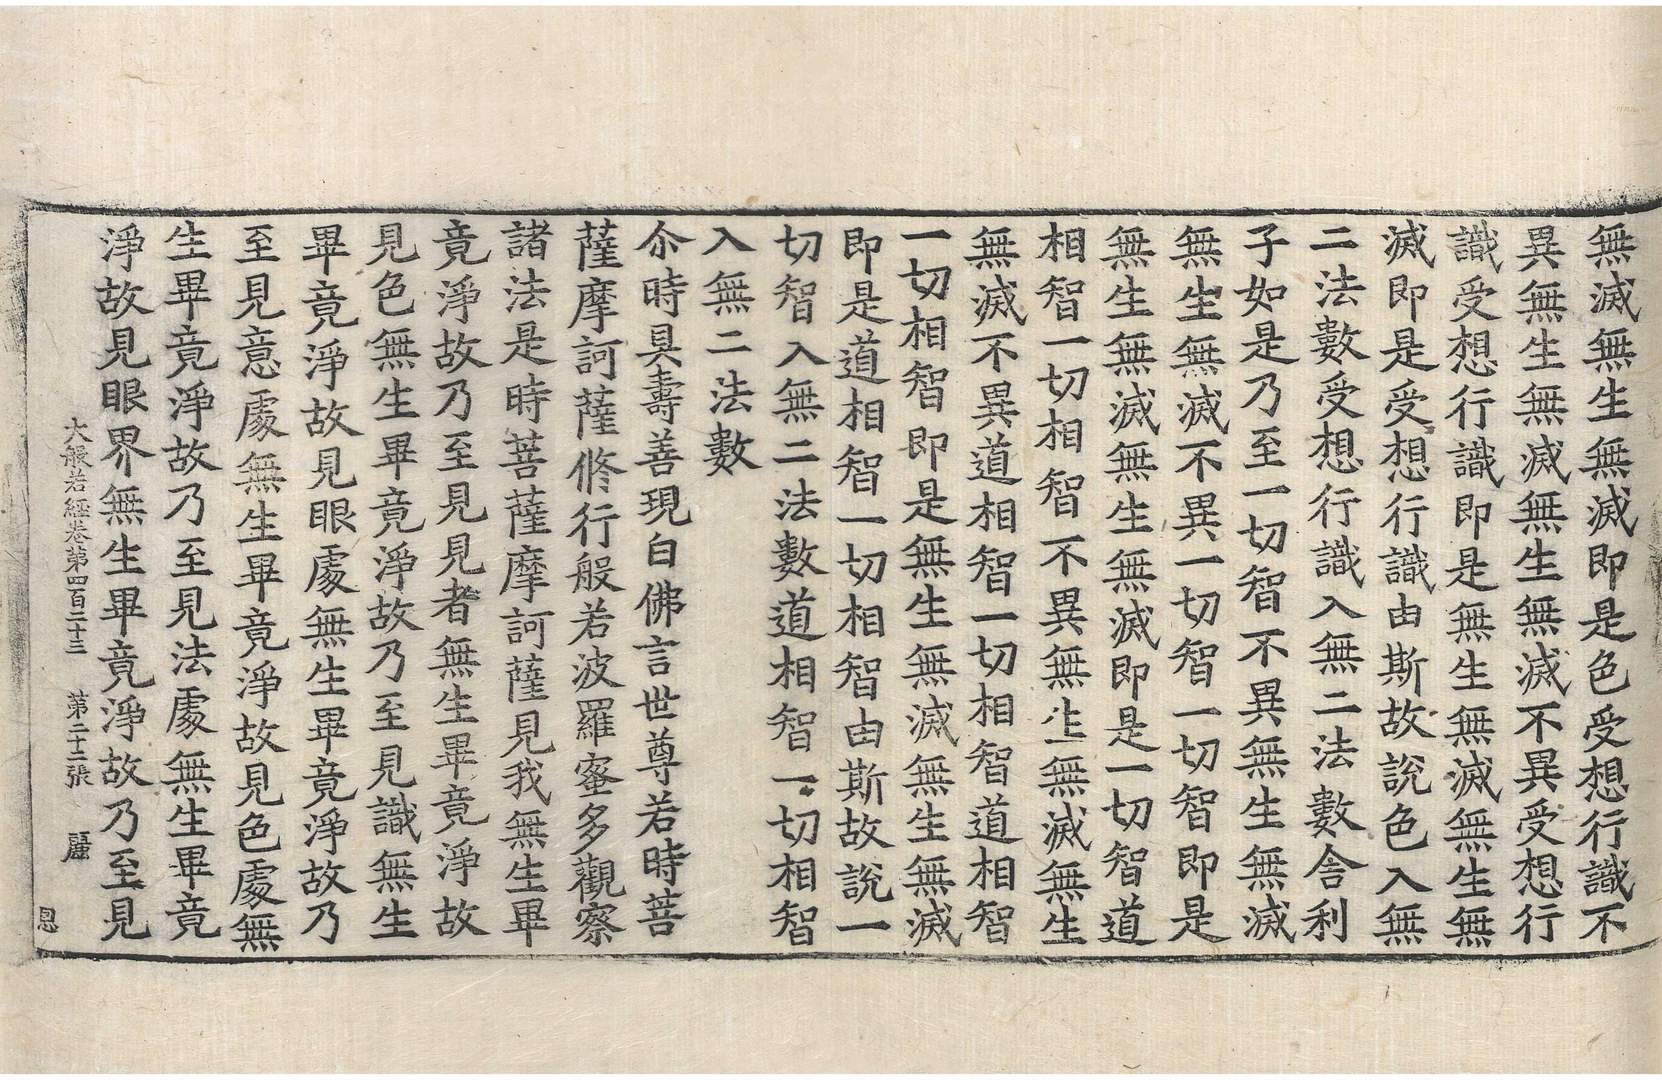 無滅無生無滅即是色受想行識不
異無生無滅無生無滅不異受想行
識受想行識即是無生無滅無生無
滅即是受想行識由斯故說色入無
二法數受想行識入無二法數舍利
子如是乃至一切智不異無生無滅
無生無滅不異一切智一切智即是
無生無滅無生無滅即是一切智道
相智一切相智不異無生無滅無生
無滅不異道相智一切相智道相智
一切相智即是無生無滅無生無滅
即是道相智一切相智由斯故說一
切智入無二法數道相智一切相智
入無二法數
尒時具壽善現白佛言世尊若時菩
薩摩訶薩修行般若波羅蜜多觀察
諸法是時菩薩摩訶薩見我無生畢
竟淨故乃至見見者無生畢竟淨故
見色無生畢竟淨故乃至見識無生
畢竟淨故見眼處無生畢竟淨故乃
至見意處無生畢竟淨故見色處無
生畢竟淨故乃至見法處無生畢竟
淨故見眼界無生畢竟淨故乃至見
大般若經卷第四百二十三 第二十二張 麗
恩